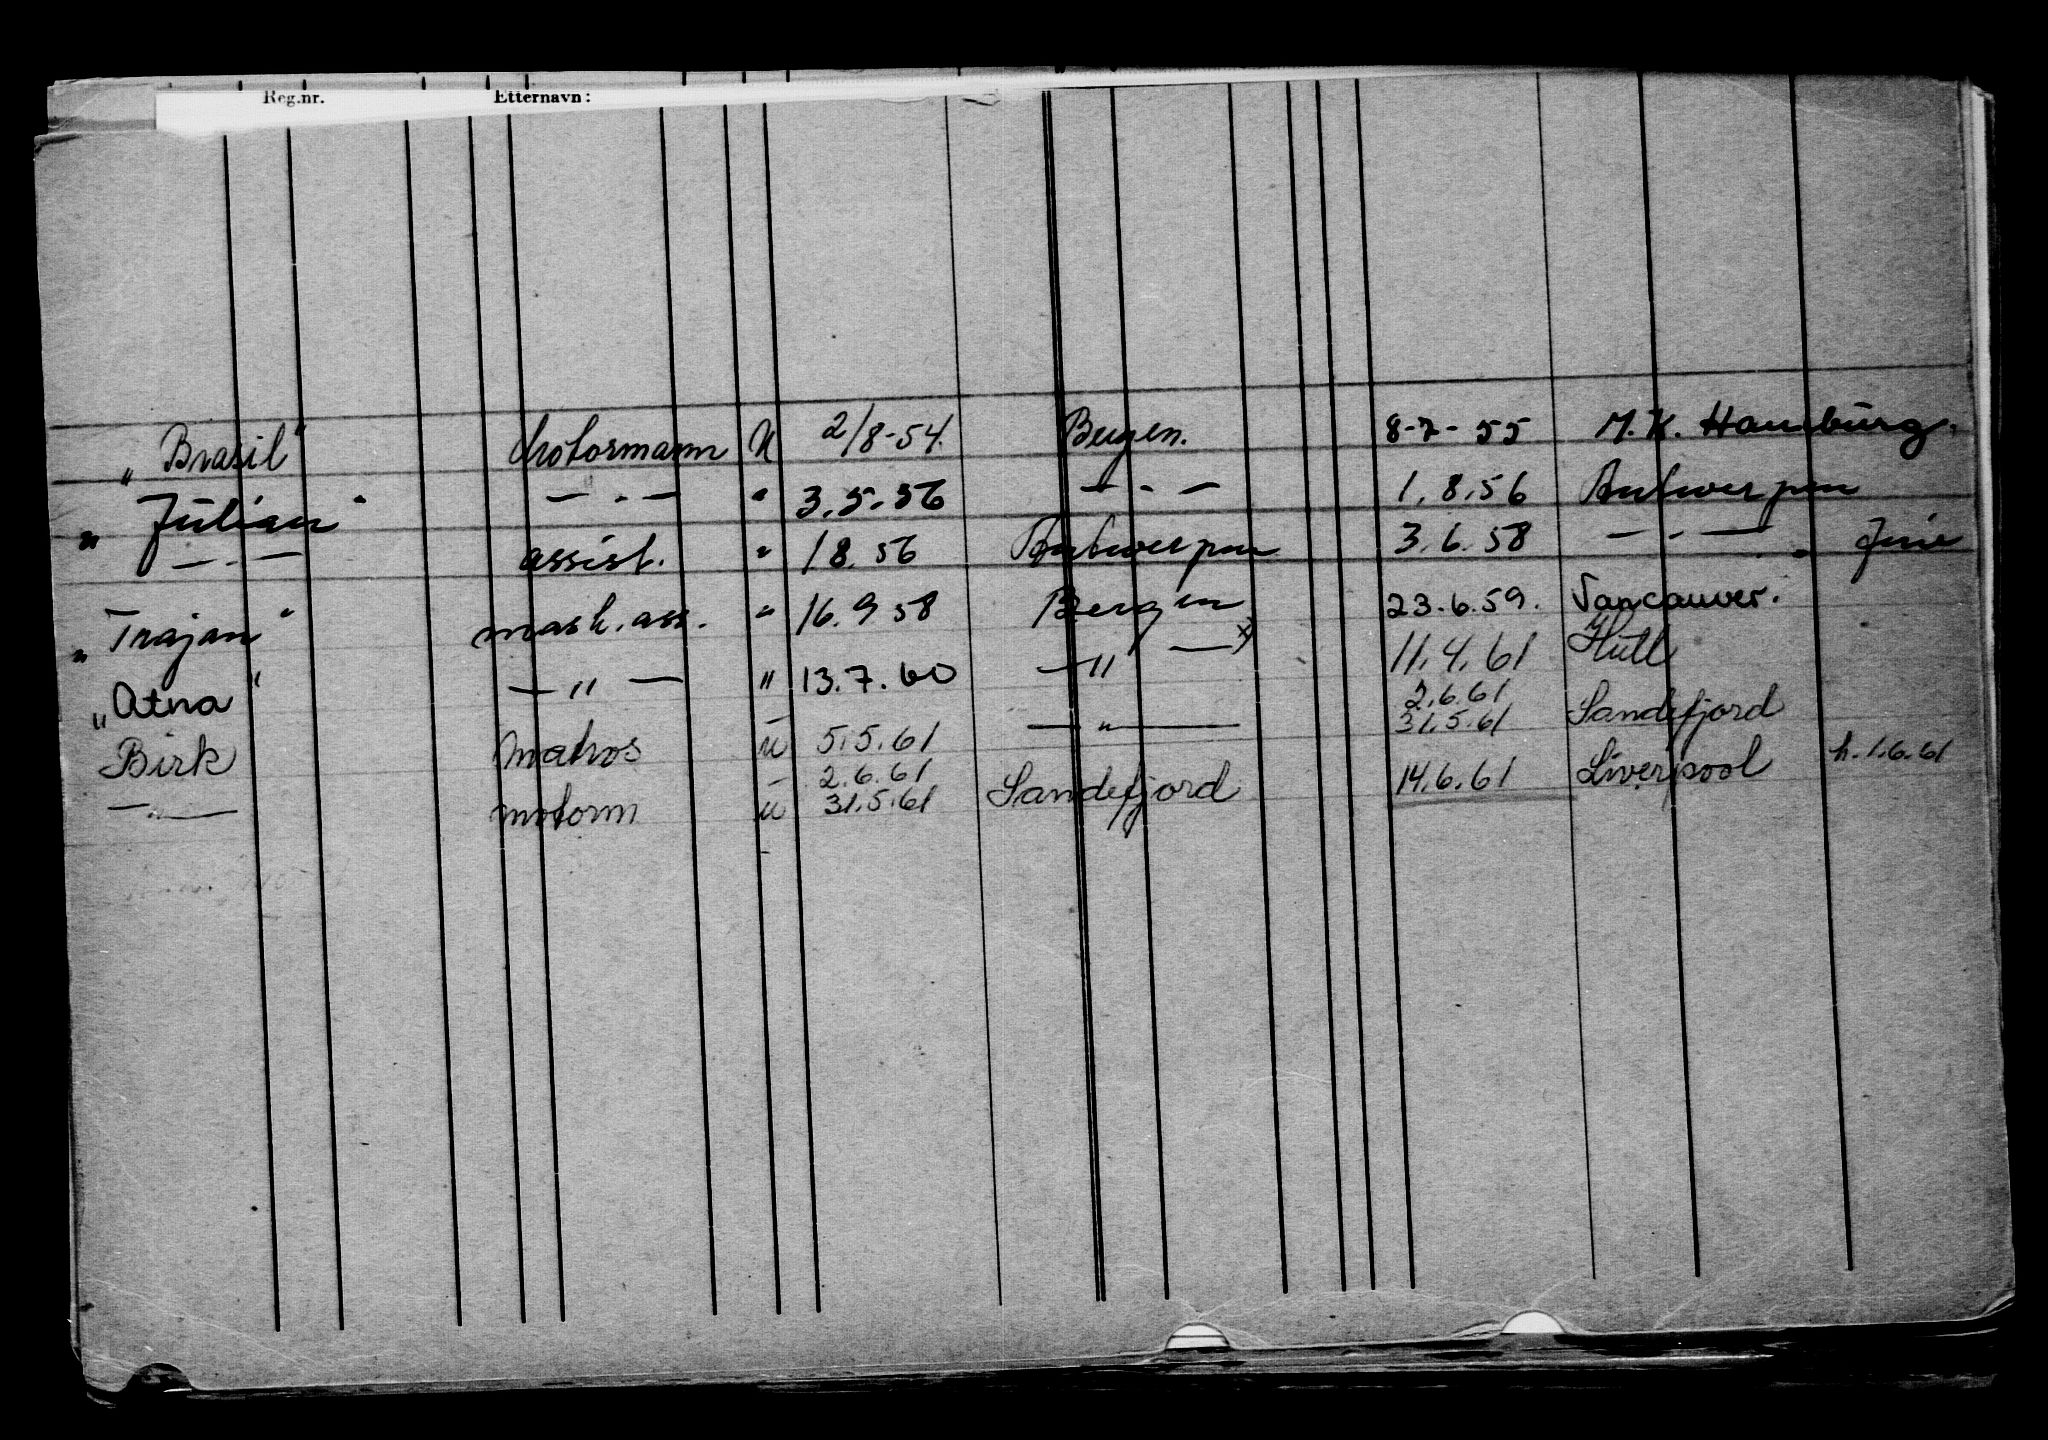 Reg.nr. Etternavn:
"Brasil" Motormann U 2/8-54. Bergen. 8-7-55 M.K. Hamburg.
"Julian" — " — " 3.5.56 — " — 1.8.56 Antwerpen
— " — assist. " 1 8. 56 Antwerpen 3.6.58 — " —
"Trajan" mask. ass. " 16. 9 58 Bergen 23.6.59. Vancouver.
"Atna" — " — " 13.7.60 — " — x) 11.4.61 Hull
Birk Matros u 5.5.61 — " — 2.6.61 31.5.61 Sandefjord
— " — motorm u 2.6.61 31.5.61 Sandefjord 14.6.61 Liverpool h. 1.6.61